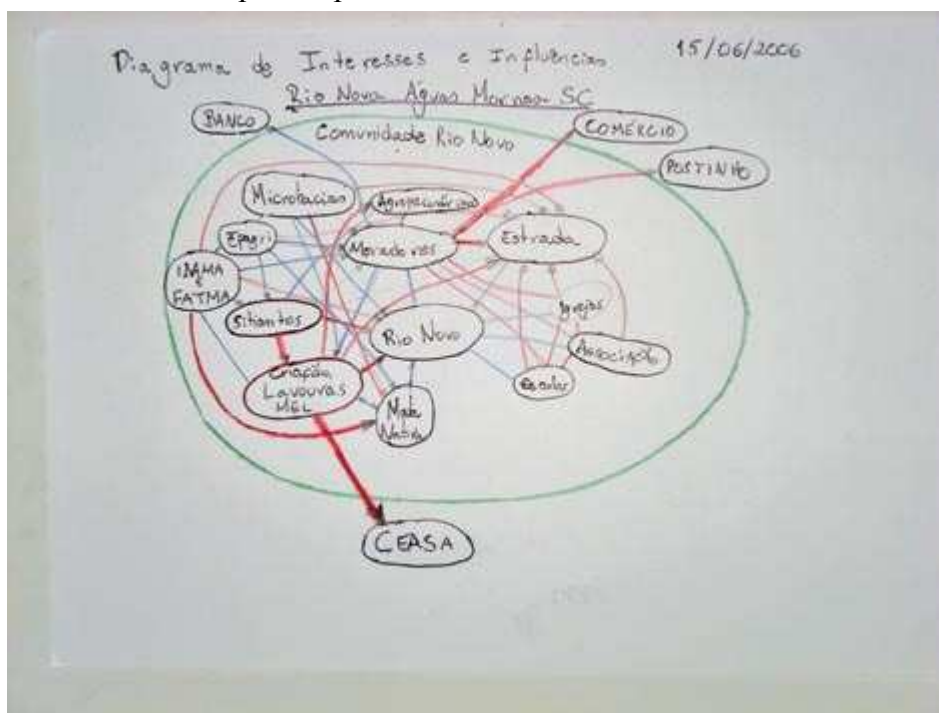 Diagrama de Interesses e Influências 15/06/2006
Rio Novo Águas Mornas SC
BANCO
COMÉRCIO
Comunidade Rio Novo
POSTINHO
Microbacias
Estrada
Epagri
Moradores
FATMA
Sitiantes
Rio Novo
Igrejas
Associação
Criação
Lavouras
MEL
Escolas
Mata
Nativa
CEASA